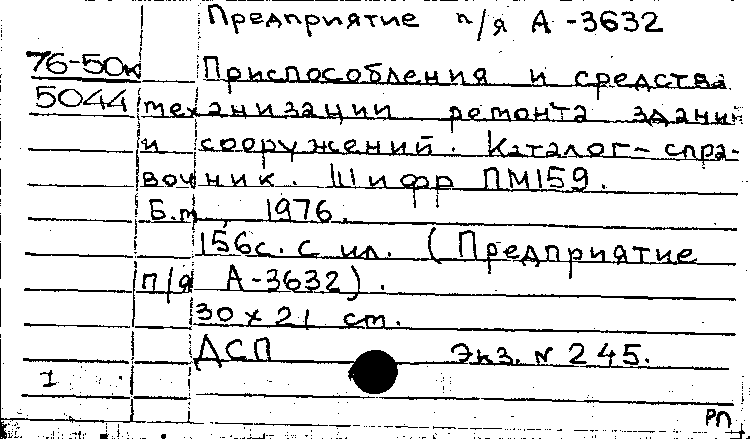 Предприятие п/я А-3632
76-50к Приспособления и средства
5044 механизации ремонта зданий
и сооружений. Каталог-спра-
вочник. Шифр ПМ159.
Б.м., 1976.
156с. с ил. (Предприятие
п/я А-3632).
30 х 21 см.
ДСП Экз. N 245.
1
РП